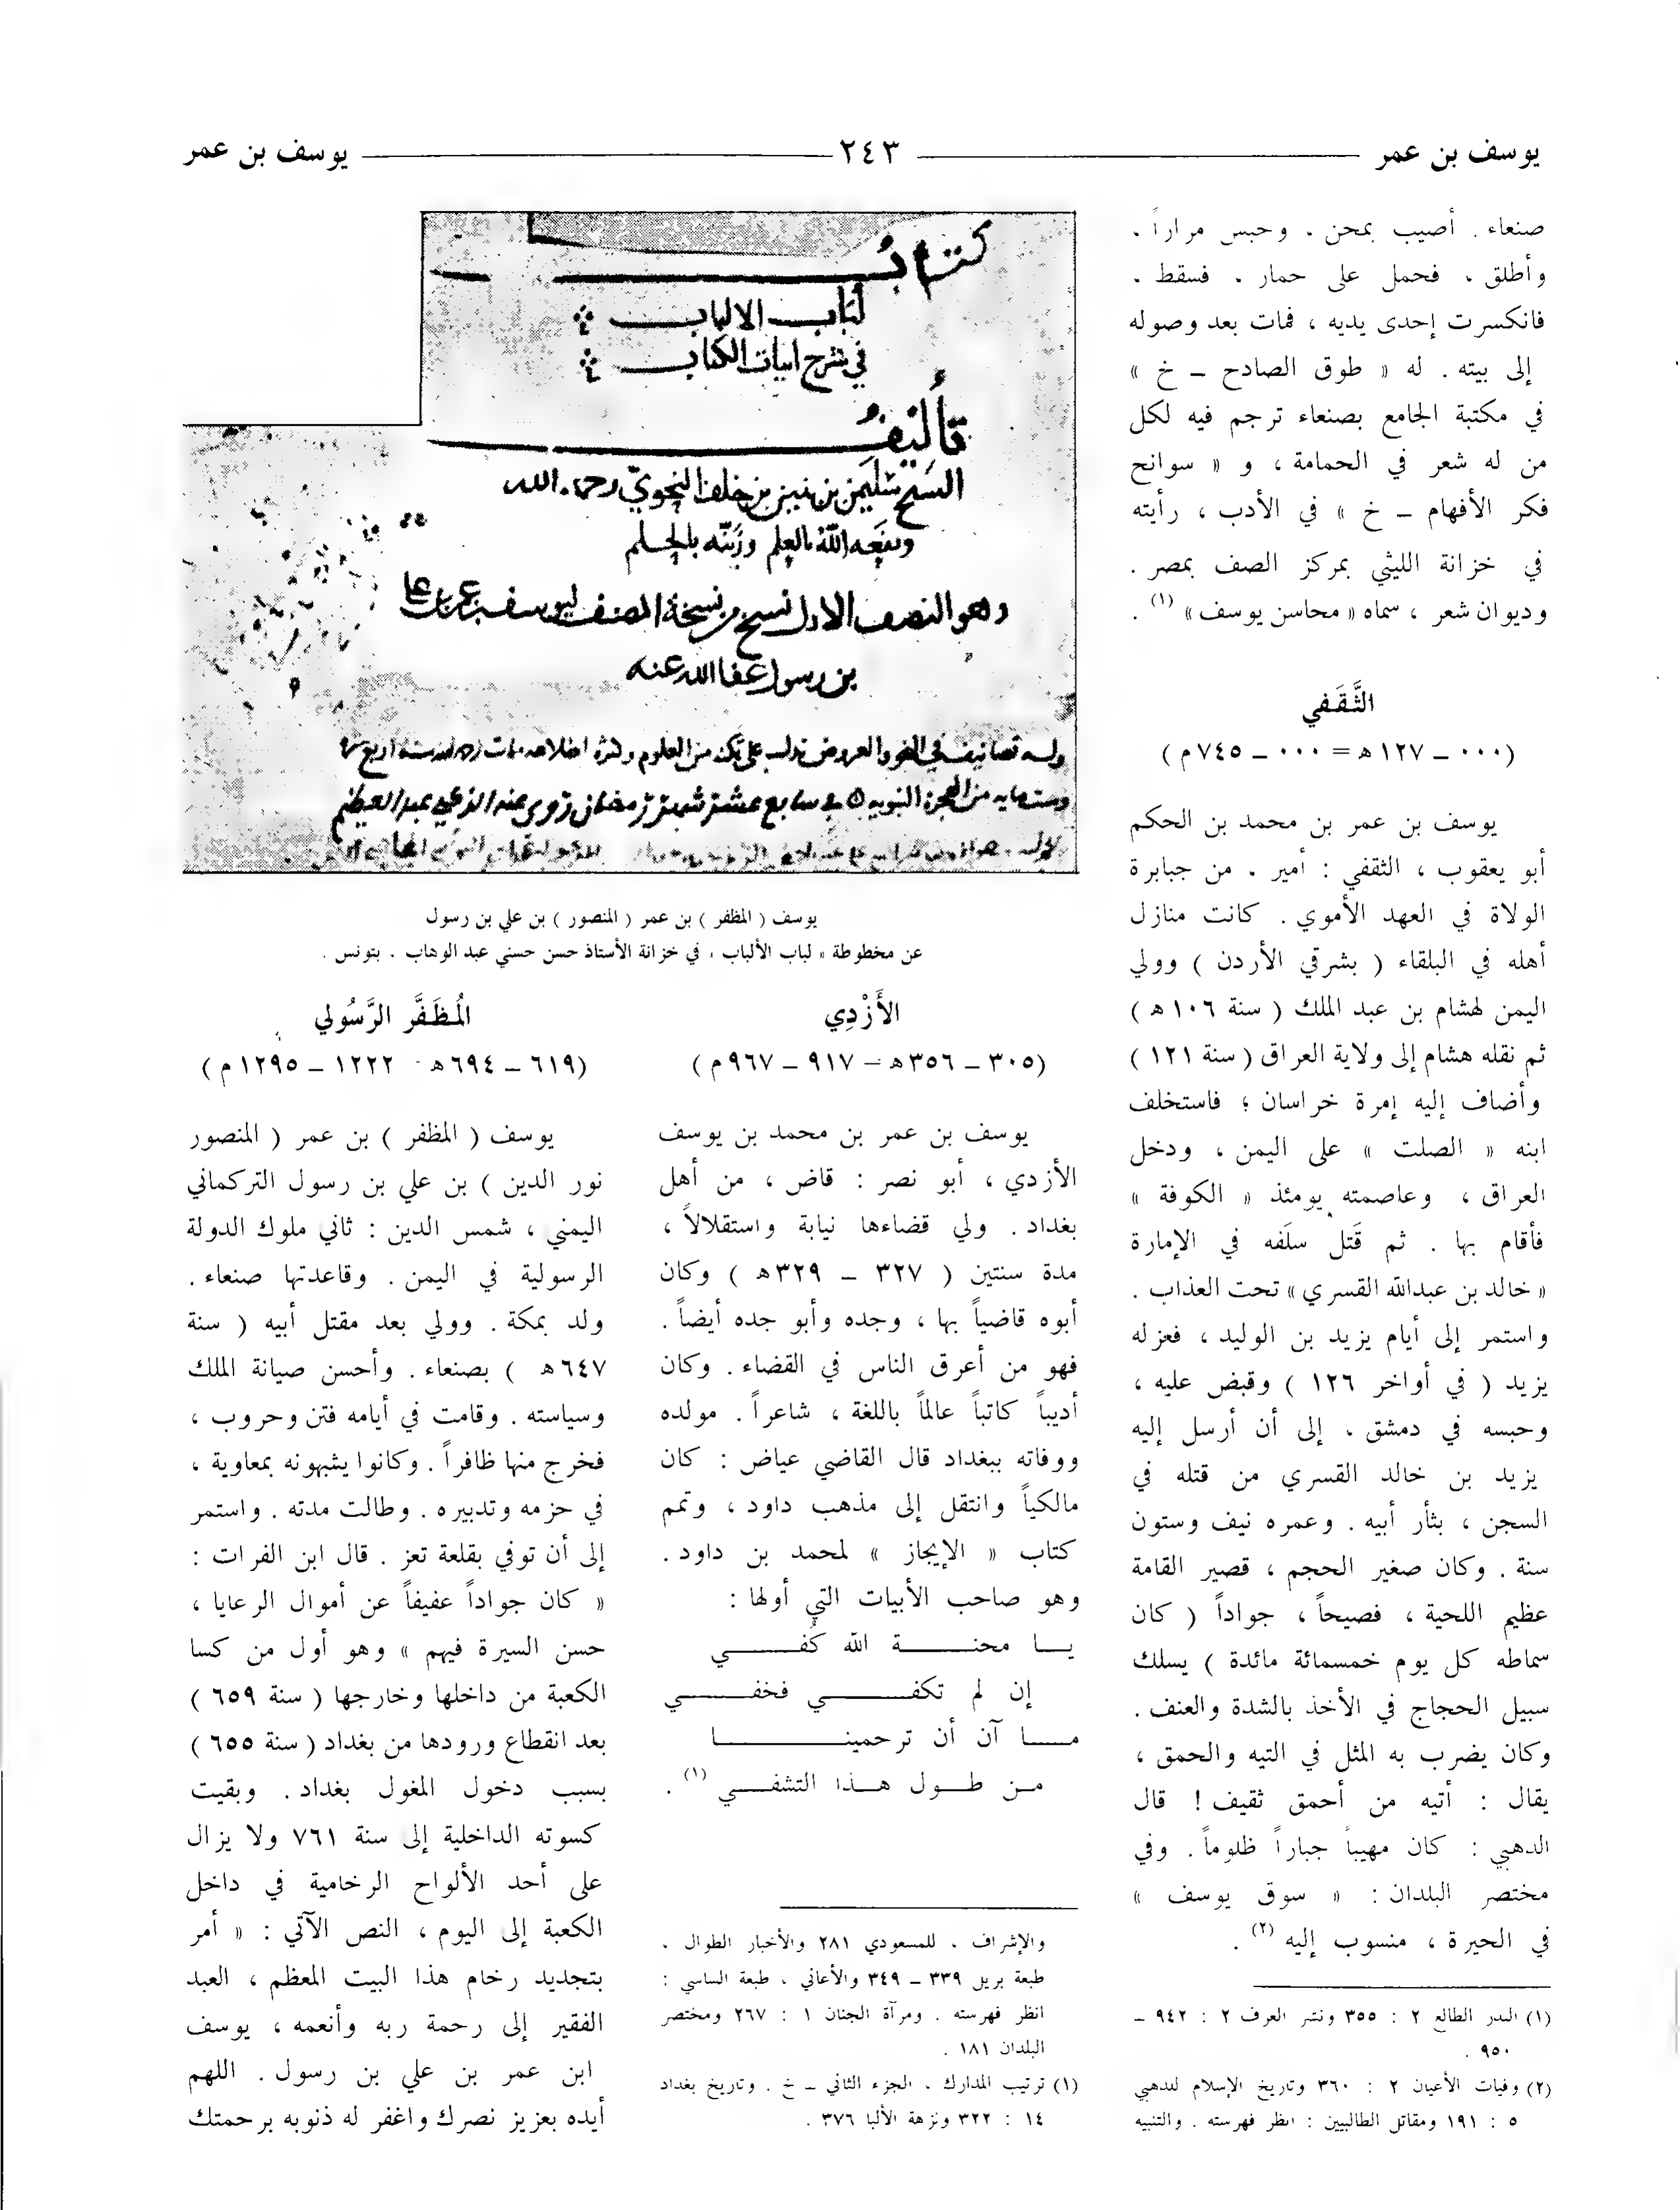 يوسف بن عمر ٢٤٣ يوسف بن عمر
صنعاء . أصيب بمحن . وحبس مراراً .
وأطلق ، فحمل على حمار ، فسقط .
فانكسرت إحدى يديه ، فمات بعد وصوله
إلى بيته . له « طوق الصادح ـ خ »
في مكتبة الجامع بصنعاء ترجم فيه لكل
من له شعر في الحمامة ، و « سوانح
فكر الأفهام ـ خ » في الأدب ، رأيته
في خزانة الليثي بمركز الصف بمصر .
وديوان شعر ، سماه « محاسن يوسف » (١) .
الثَّقَفي
(٠٠٠ ـ ١٢٧ هـ = ٠٠٠ ـ ٧٤٥ م)
يوسف بن عمر بن محمد بن الحكم
أبو يعقوب ، الثقفي : أمير . من جبابرة
الولاة في العهد الأموي . كانت منازل
أهله في البلقاء ( بشرقي الأردن ) وولي
اليمن لهشام بن عبد الملك ( سنة ١٠٦ هـ )
ثم نقله هشام إلى ولاية العراق ( سنة ١٢١ )
وأضاف إليه إمرة خراسان ؛ فاستخلف
ابنه « الصلت » على اليمن ، ودخل
العراق ، وعاصمته يومئذ « الكوفة »
فأقام بها . ثم قَتل سلَفه في الإمارة
« خالد بن عبدالله القسري » تحت العذاب .
واستمر إلى أيام يزيد بن الوليد ، فعزله
يزيد ( في أواخر ١٢٦ ) وقبض عليه ،
وحبسه في دمشق ، إلى أن أرسل إليه
يزيد بن خالد القسري من قتله في
السجن ، بثأر أبيه . وعمره نيف وستون
سنة . وكان صغير الحجم ، قصير القامة
عظيم اللحية ، فصيحاً ، جواداً ( كان
سماطه كل يوم خمسمائة مائدة ) يسلك
سبيل الحجاج في الأخذ بالشدة والعنف .
وكان يضرب به المثل في التيه والحمق ،
يقال : أتيه من أحمق ثقيف ! قال
الذهبي : كان مهيباً جباراً ظلوماً . وفي
مختصر البلدان : « سوق يوسف »
في الحيرة ، منسوب إليه (٢) .
(١) البدر الطالع ٢ : ٣٥٥ ونشر العرف ٢ : ٩٤٢ ـ
٩٥٠ .
(٢) وفيات الأعيان ٢ : ٣٦٠ وتاريخ الإسلام للذهبي
٥ : ١٩١ ومقاتل الطالبيين : انظر فهرسته . والتنبيه
كتاب
لباب الالباب
في شرح ابيات الكتاب
تأليف
الشيخ سليمن بن بنين بن خلف النحوي رحمه الله
ونفعه الله بالعلم وزينه بالحلم
وهو النصف الاول نسخ من نسخة المصنف ليوسف بن عمر بن علي
بن رسول عفا الله عنه
وله تصانيف في النحو والعروض تدل على تمكنه من العلوم وكثرة اطلاعه مات رحمه الله سنة اربع عشرة
وستمايه من الهجرة النبويه في سابع عشر شهر رمضان روى عنه الزكي عبد العظيم
يوسف ( المظفر ) بن عمر ( المنصور ) بن علي بن رسول
عن مخطوطة « لباب الألباب ، في خزانة الأستاذ حسن حسني عبد الوهاب . بتونس .
الأَزْدِي
(٣٠٥ ـ ٣٥٦ هـ = ٩١٧ ـ ٩٦٧ م)
يوسف بن عمر بن محمد بن يوسف
الأزدي ، أبو نصر : قاض ، من أهل
بغداد . ولي قضاءها نيابة واستقلالاً ،
مدة سنتين ( ٣٢٧ ـ ٣٢٩ هـ ) وكان
أبوه قاضياً بها ، وجده وأبو جده أيضاً .
فهو من أعرق الناس في القضاء . وكان
أديباً كاتباً عالماً باللغة ، شاعراً . مولده
ووفاته ببغداد قال القاضي عياض : كان
مالكياً وانتقل إلى مذهب داود ، وتمم
كتاب « الإيجاز » لمحمد بن داود .
وهو صاحب الأبيات التي أولها :
يـا محنـة الله كُفـي
إن لم تكفـي فخفـي
مـا آن أن ترحمينـا
مـن طـول هـذا التشفـي (١) .
والإشراف ، للمسعودي ٢٨١ والأخبار الطوال ،
طبعة بريل ٣٣٩ ـ ٣٤٩ والأغاني ، طبعة الساسي :
انظر فهرسته . ومرآة الجنان ١ : ٢٦٧ ومختصر
البلدان ١٨١ .
(١) ترتيب المدارك . الجزء الثاني ـ خ . وتاريخ بغداد
١٤ : ٣٢٢ ونزهة الألبا ٣٧٦ .
المُظَفَّر الرَّسُولي
(٦١٩ ـ ٦٩٤ هـ ١٢٢٢ ـ ١٢٩٥ م)
يوسف ( المظفر ) بن عمر ( المنصور
نور الدين ) بن علي بن رسول التركماني
اليمني ، شمس الدين : ثاني ملوك الدولة
الرسولية في اليمن . وقاعدتها صنعاء .
ولد بمكة . وولي بعد مقتل أبيه ( سنة
٦٤٧ هـ ) بصنعاء . وأحسن صيانة الملك
وسياسته . وقامت في أيامه فتن وحروب ،
فخرج منها ظافراً . وكانوا يشبهونه بمعاوية ،
في حزمه وتدبيره . وطالت مدته . واستمر
إلى أن توفي بقلعة تعز . قال ابن الفرات :
« كان جواداً عفيفاً عن أموال الرعايا ،
حسن السيرة فيهم » وهو أول من كسا
الكعبة من داخلها وخارجها ( سنة ٦٥٩ )
بعد انقطاع ورودها من بغداد ( سنة ٦٥٥ )
بسبب دخول المغول بغداد . وبقيت
كسوته الداخلية إلى سنة ٧٦١ ولا يزال
على أحد الألواح الرخامية في داخل
الكعبة إلى اليوم ، النص الآتي : « أمر
بتجديد رخام هذا البيت المعظم ، العبد
الفقير إلى رحمة ربه وأنعمه ، يوسف
ابن عمر بن علي بن رسول . اللهم
أيده بعزيز نصرك واغفر له ذنوبه برحمتك